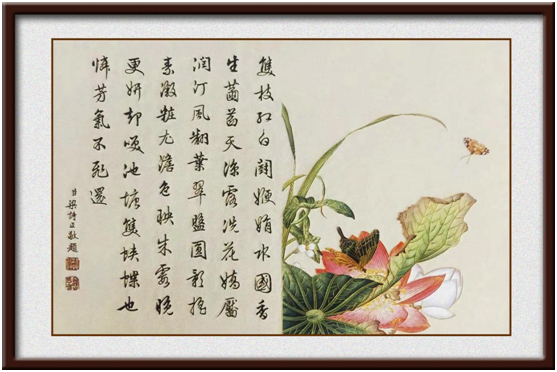 雙枝紅白鬪娟水國香
生菡萏天涼露洗花嬌靨
潤汀風翻葉翠盤圓影搖
素瀲粧尤澹色映朱霞晚
更妍却喚池塘雙蛺蝶也
憐芳氣不飛還
臣梁詩正敬題